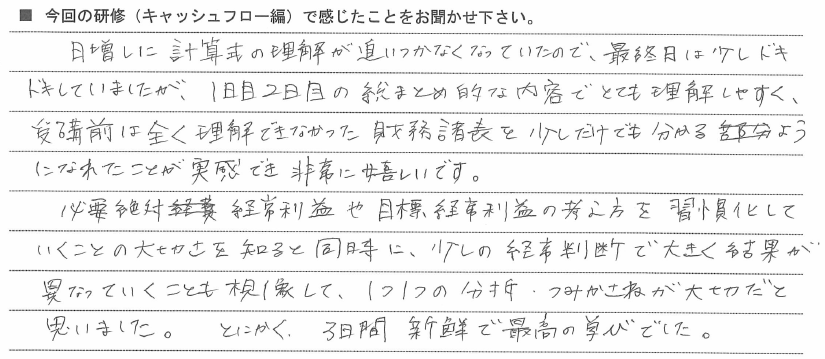 ■ 今回の研修（キャッシュフロー編）で感じたことをお聞かせ下さい。
日増しに計算式の理解が追いつかなくなっていたので、最終日は少しドキ
ドキしていましたが、1日目2日目の総まとめ的な内容でとても理解しやすく、
受講前は全く理解できなかった財務諸表を少しだけでも分かるよう
になれたことが実感でき非常に嬉しいです。
必要絶対経常利益や目標経常利益の考え方を習慣化して
いくことの大切さを知ると同時に、少しの経常判断で大きく結果が
異なっていくことも想像して、1つ1つの分析・つみかさねが大切だと
思いました。とにかく、3日間新鮮で最高の学びでした。